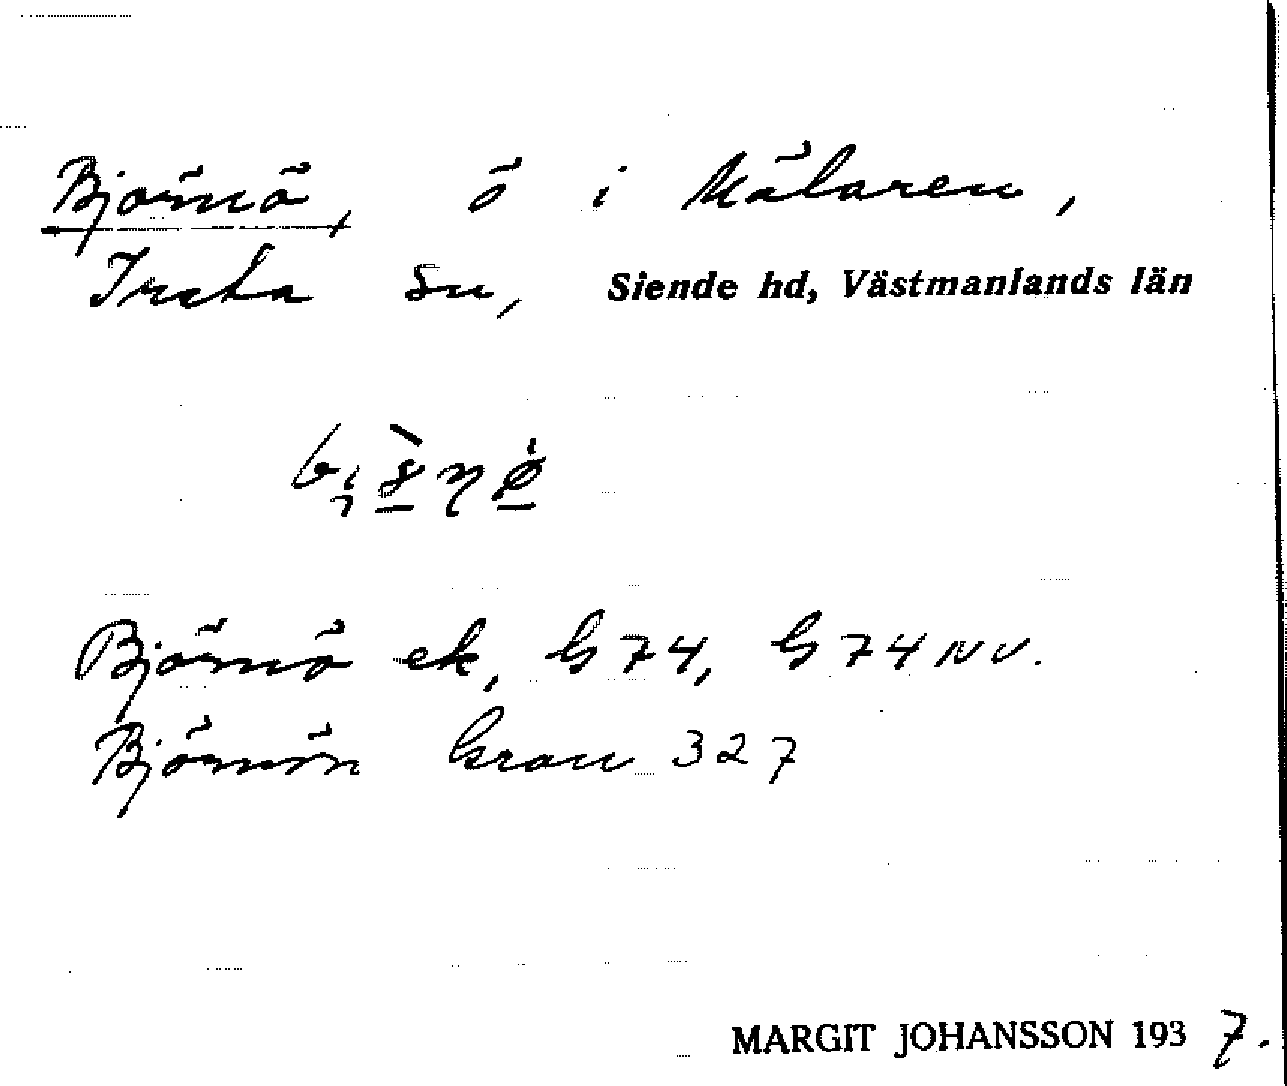 Björnö, ö i Mälaren,
Irsta sn, Siende hd, Västmanlands län
Björnö ek, G 74, G 74 NV.
Björnön Grau 327
MARGIT JOHANSSON 1937.